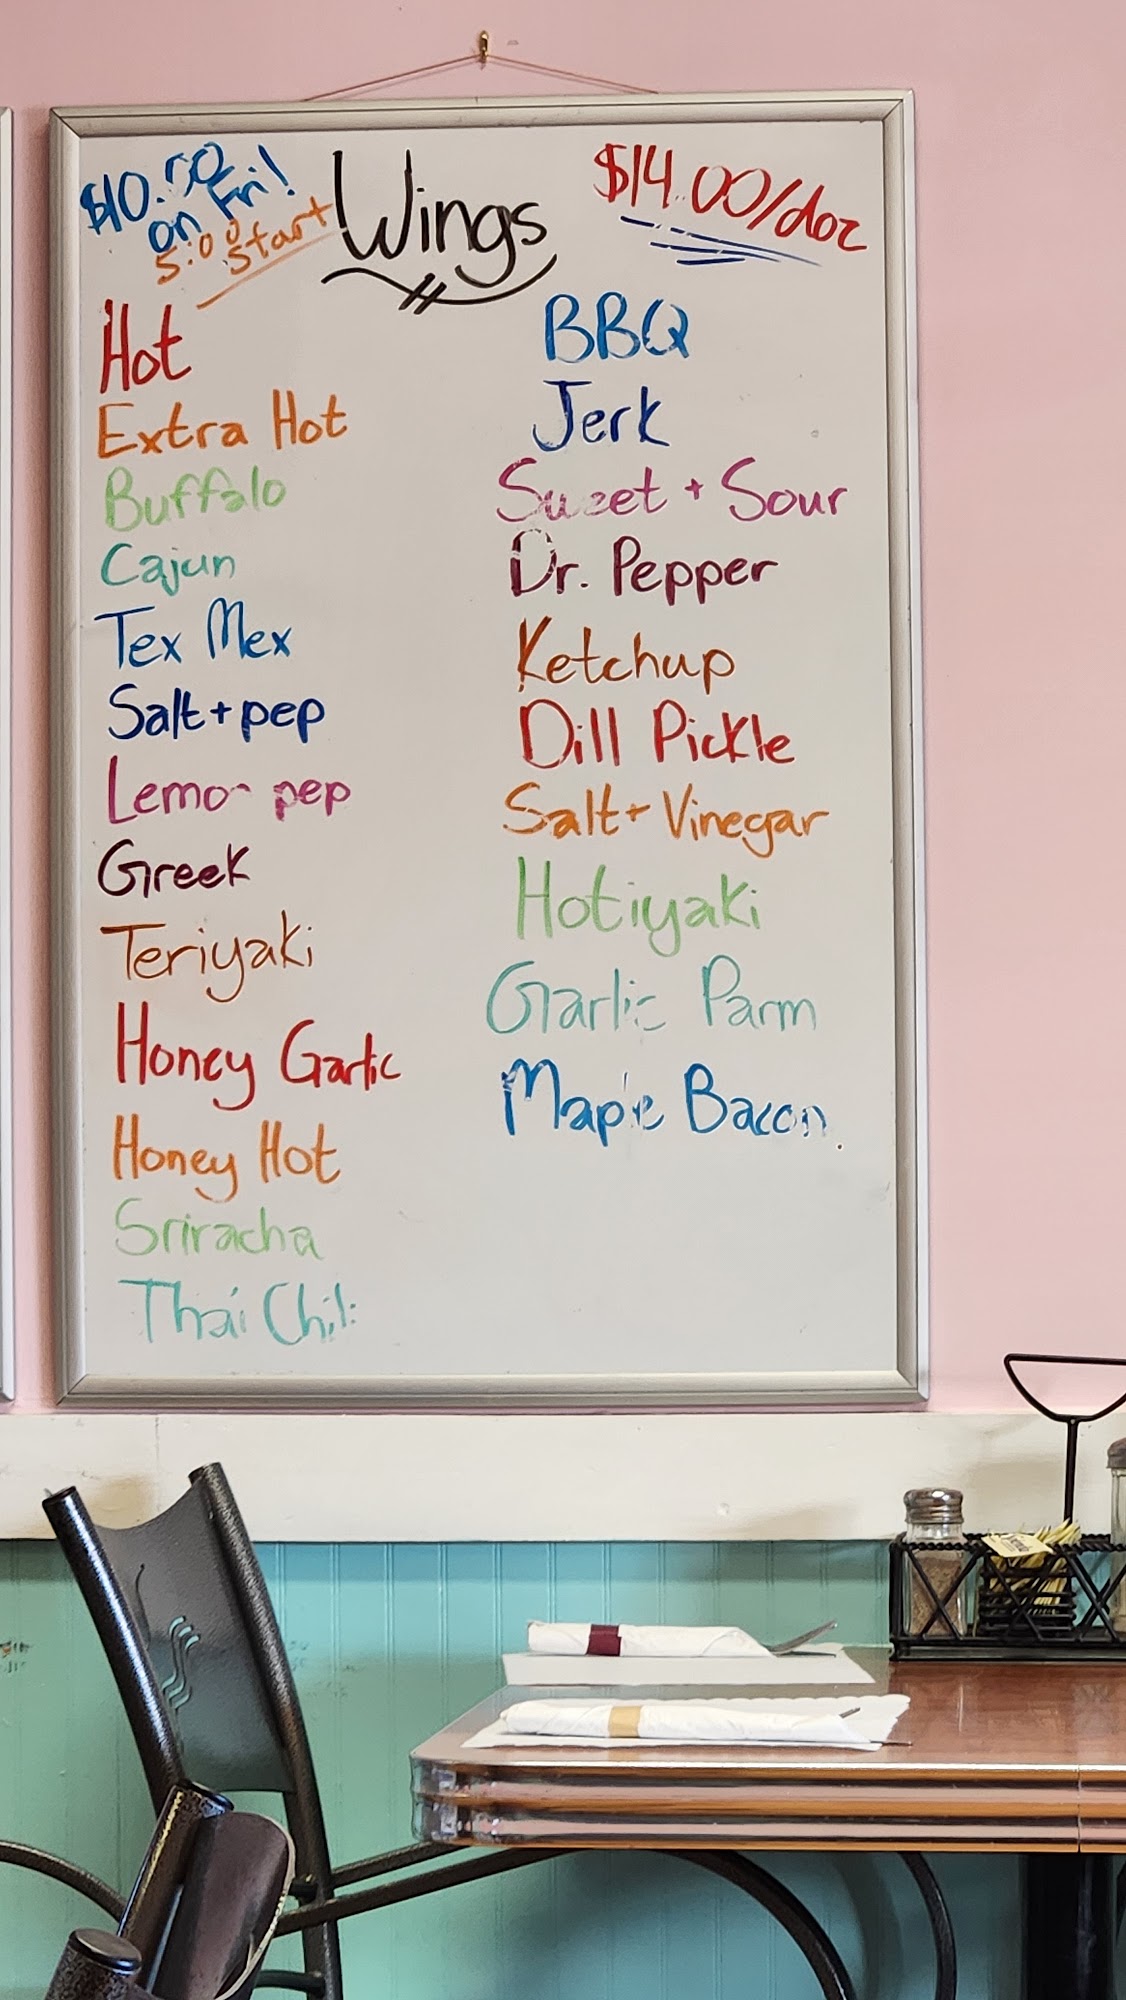 $10.50
on Fri!
5:00 start
Wings
$14.00/doz
Hot
Extra Hot
Buffalo
Cajun
Tex Mex
Salt + pep
Lemon pep
Greek
Teriyaki
Honey Garlic
Honey Hot
Sriracha
Thai Chili
BBQ
Jerk
Sweet + Sour
Dr. Pepper
Ketchup
Dill Pickle
Salt + Vinegar
Hotiyaki
Garlic Parm
Maple Bacon